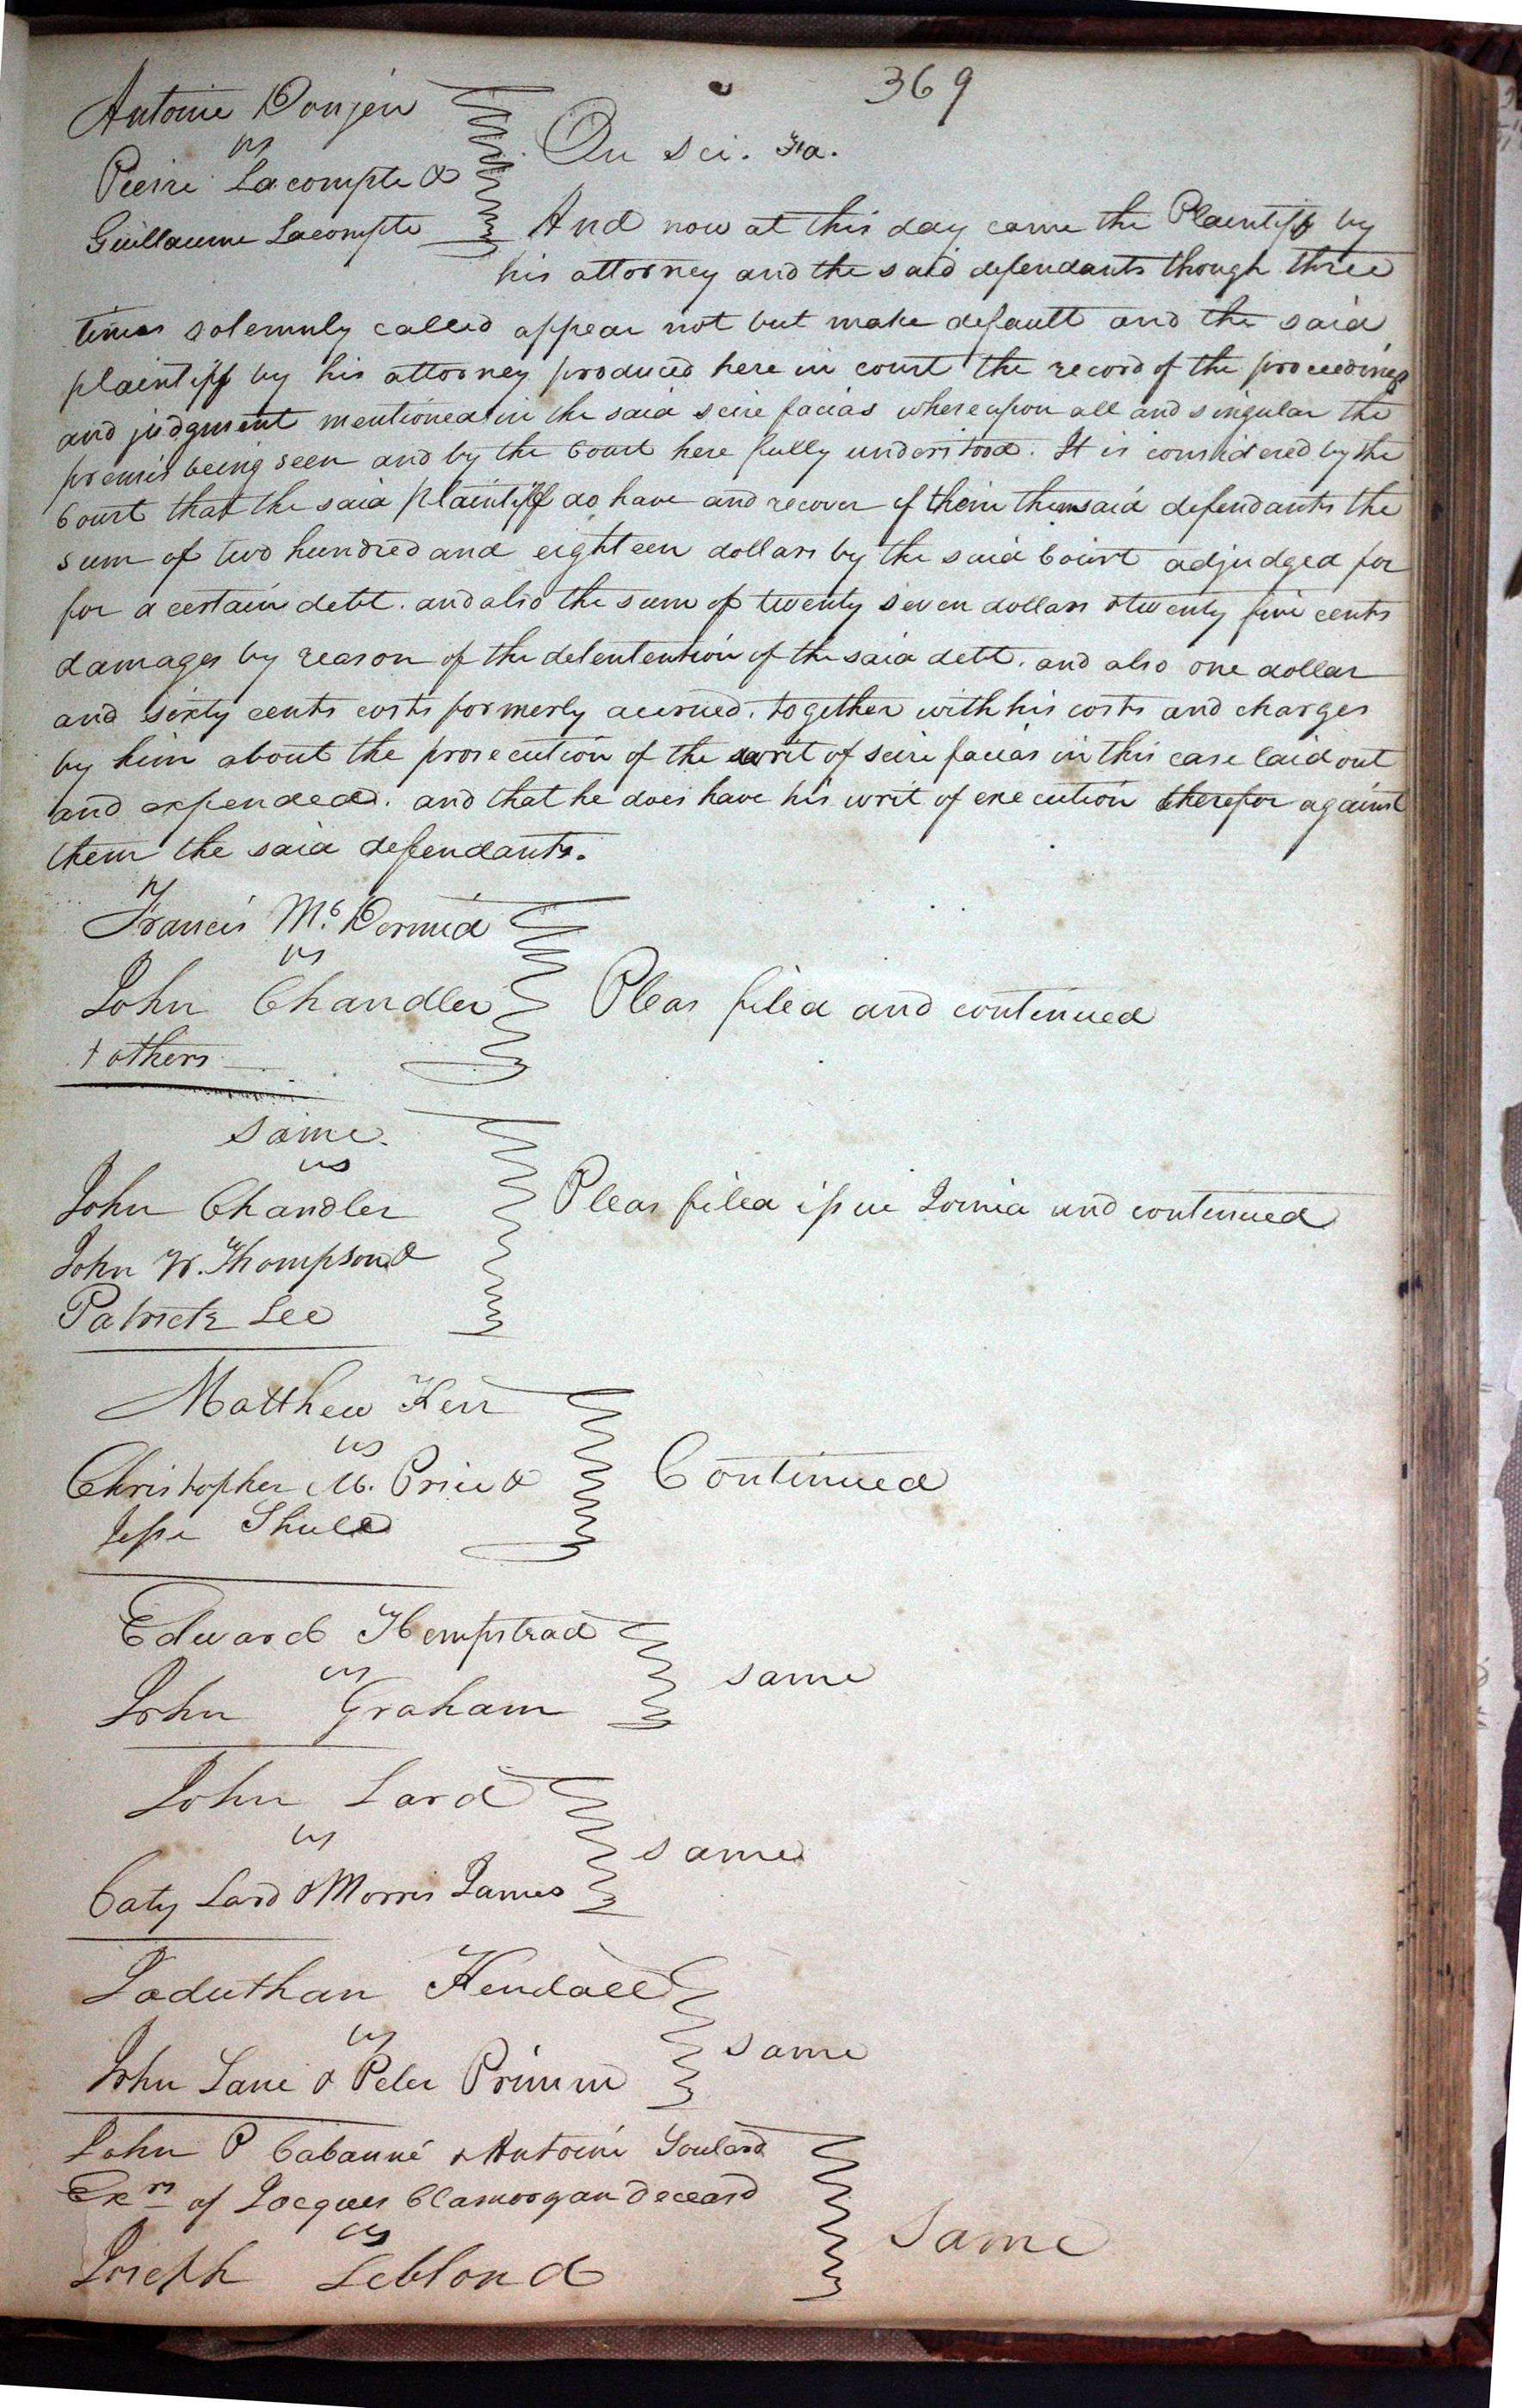 369
Antoine Donjen
vs
Pierre Lacompte &
Guillaume Lacompte
On sci. Fa.
And now at this day came the Plaintiff by
his attorney and the said defendants though three
times solemnly called appear not but make default and the said
plaintiff by his attorney produced here in court the record of the proceedings
and judgment mentioned in the said scire facias whereupon all and singular the
premis being seen and by the Court here fully understood. It is considered by the
Court that the said Plaintiff do have and recover of them the said defendants the
sum of two hundred and eighteen dollars by the said Court adjudged for
for a certain debt. and also the sum of twenty seven dollars & twenty five cents
damages by reason of the detentention of the said debt. and also one dollar
and sixty cents costs formerly accrued. together with his costs and charges
by him about the prosecution of the writ of scire facias in this case laid out
and expended. and that he does have his writ of execution therefor against
them the said defendants.
Francis McDermid
vs
John Chandler
& others
Pleas filed and continued
Same.
vs
John Chandler
John W. Thompson &
Patrick Lee
Pleas filed issue Joined and continued
Matthew Kerr
vs
Christopher M. Price &
Jesse Shull
Continued
Edward Hempstead
vs
John Graham
same
John Lard
vs
Caty Lard & Morris James
same
Jaduthan Kendall
vs
John Lane & Peter Primm
same
John P Cabanné & Antoine Soulard
Exrs of Jacques Clamorgan deceasd
vs
Joseph Leblond
Same